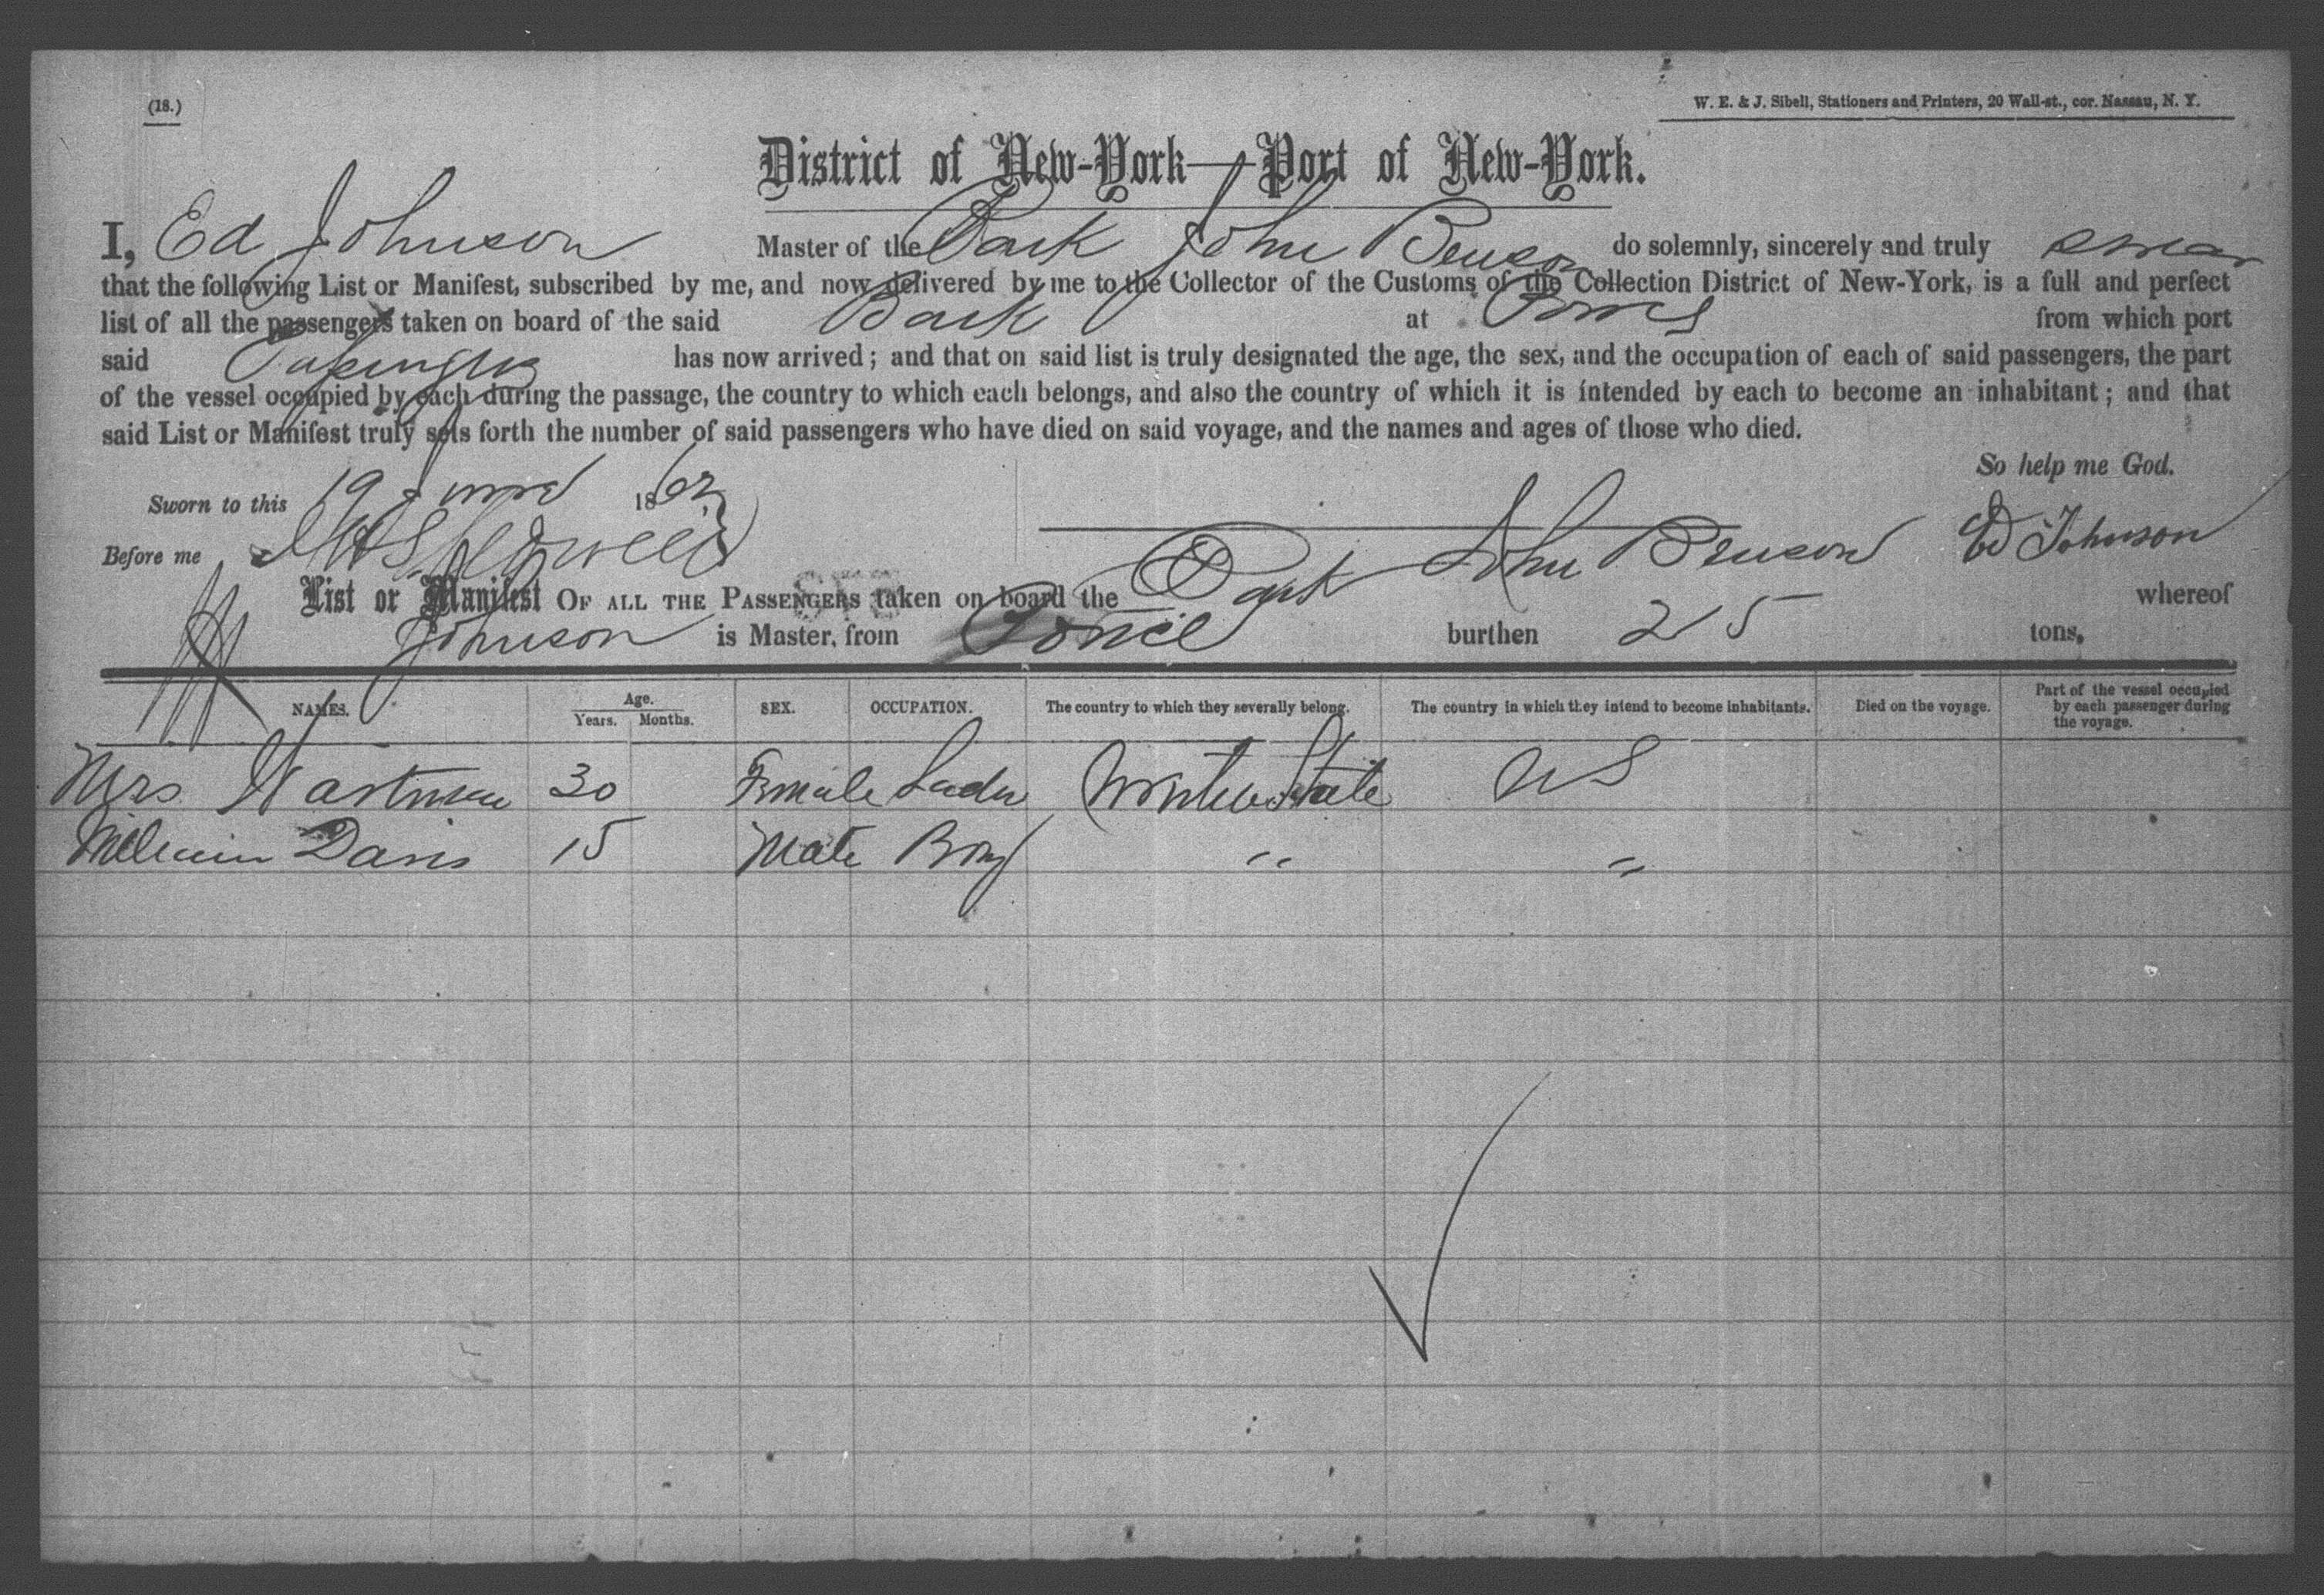 (18.)
W. E. & J. Sibell, Stationers and Printers, 20 Wall-st., cor. Nassau, N. Y.
District of New-York—Port of New-York.
I, Ed Johnson Master of the Bark John Benson do solemnly, sincerely and truly swear
that the following List or Manifest, subscribed by me, and now delivered by me to the Collector of the Customs of the Collection District of New-York, is a full and perfect
list of all the passengers taken on board of the said Bark at from which port
said has now arrived; and that on said list is truly designated the age, the sex, and the occupation of each of said passengers, the part
of the vessel occupied by each during the passage, the country to which each belongs, and also the country of which it is intended by each to become an inhabitant; and that
said List or Manifest truly sets forth the number of said passengers who have died on said voyage, and the names and ages of those who died.
So help me God.
Sworn to this 19 1862
Before me
Ed Johnson
List or Manifest OF ALL THE PASSENGERS taken on board the Bark John Benson whereof
Johnson is Master, from Ponce burthen 215 tons,
NAMES. Age. Years. Months. SEX. OCCUPATION. The country to which they severally belong. The country in which they intend to become inhabitants. Died on the voyage. Part of the vessel occupied by each passenger during the voyage.
Mrs 30 Female State US
Davis 15 Male Boy " "